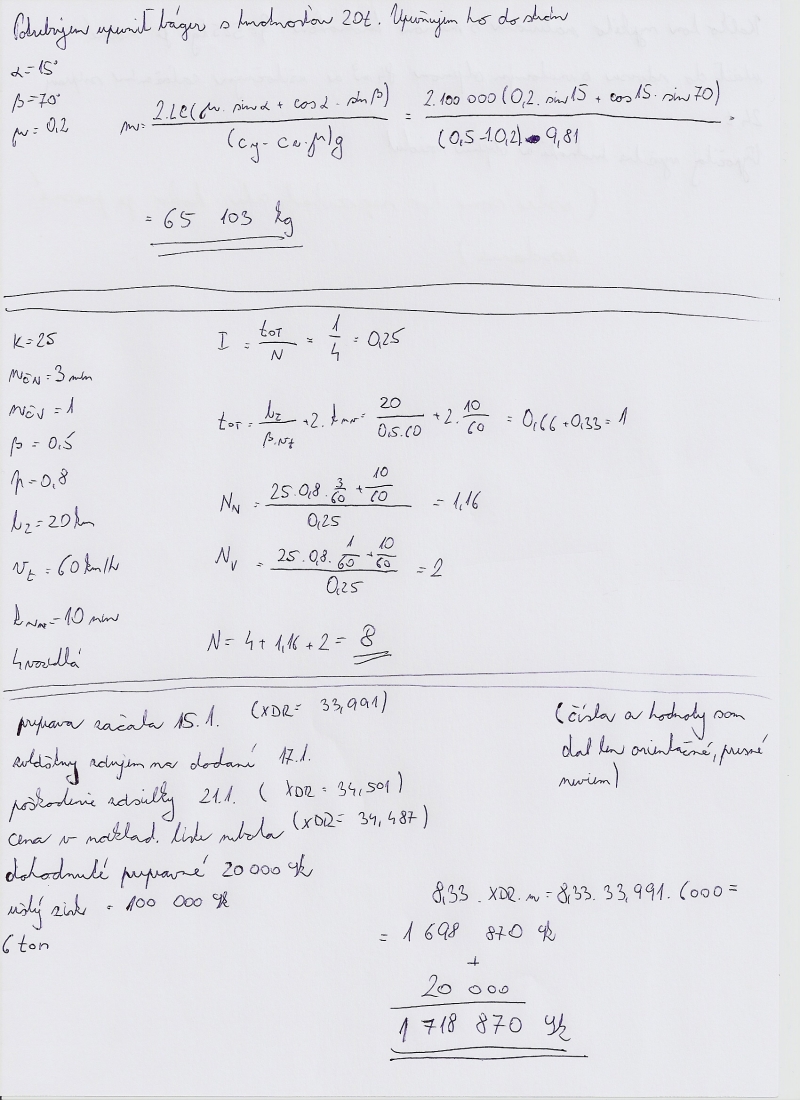 Potrebujem upevniť báger s hmotnosťou 20t. Upevňujem ho do strán
α=15°
β=70°
μ=0,2
m= 2.LC(μ. sinα + cosα . sinβ) / (cy - cx.μ)g = 2.100 000(0,2. sin15 + cos15. sin70) / (0,5-1.0,2) 9,81 =
= 65 103 kg
K=25
3 min
=1
β=0,5
=0,8
Lz=20km
vt=60km/h
=10 min
4 vozidlá
I = tOT / N = 1/4 = 0,25
tOT = Lz / β.vt + 2. = 20 / 0,5.60 + 2. 10/60 = 0,66+0,33=1
NN = 25.0,8. 3/60 + 10/60 / 0,25 = 1,16
NV = 25.0,8. 1/60 + 10/60 / 0,25 = 2
N= 4+1,16+2= 8
preprava začala 15.1. (XDR= 33,991)
zvláštny záujem na dodaní 17.1.
poškodenie zásielky 21.1. (XDR = 34,501)
cena v náklad. liste nebola (XDR= 34,487)
dohodnuté prepravné 20 000 Sk
zisk = 100 000 Sk
6 ton
(čísla a hodnoty som
dal len orientačné, presné
neviem)
8,33 . XDR.m = 8,33. 33,991. 6000 =
= 1 698 870 Sk
+
20 000
1 718 870 Sk